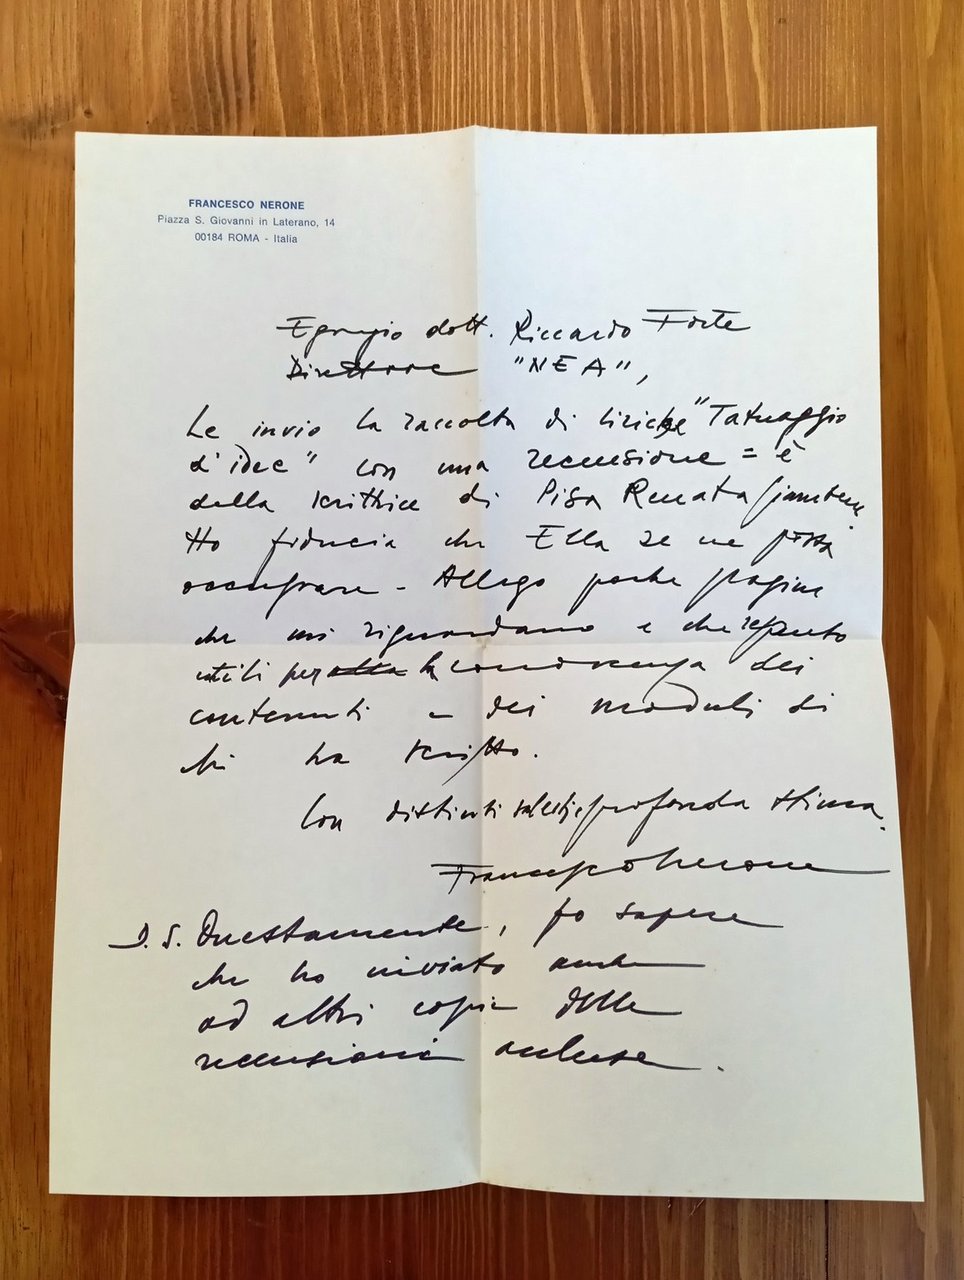 FRANCESCO NERONE
Piazza S. Giovanni in Laterano, 14
00184 ROMA - Italia
Egregio dott. Riccardo Forte
Direttore "NEA",
Le invio la raccolta di liriche "Tatuaggio
d'idee" con una recensione = è
della scrittrice di Pisa Renata
Ho fiducia che Ella se ne possa
occupare - Allego poche pagine
che mi riguardano e che reputo
utili per la conoscenza dei
contenuti e dei moduli di
chi ha scritto.
Con distinti saluti e profonda stima.
Francesco Nerone
P.S. Onestamente, fo sapere
che ho inviato anche
ad altri copia delle
recensioni accluse.